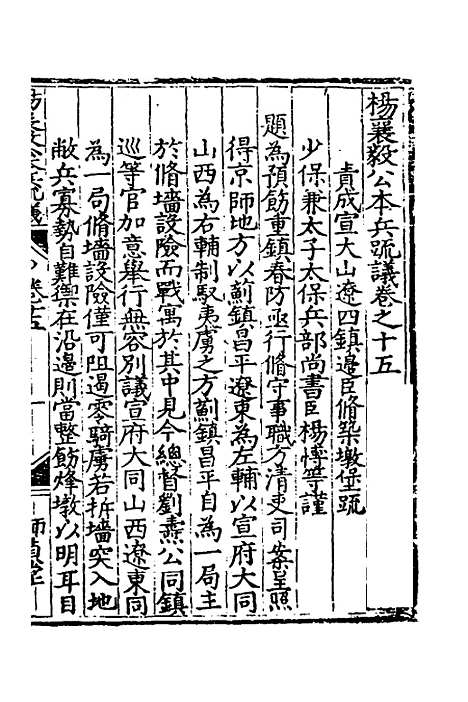 楊襄毅公本兵疏議卷之十五
責成宣大山遼四鎮邊臣脩築墩堡疏
少保兼太子太保兵部尚書臣楊博等謹
題為預飭重鎮春防亟行脩守事職方清吏司案呈照
得京師地方以薊鎮昌平遼東為左輔以宣府大同
山西為右輔制馭夷虜之方薊鎮昌平自為一局主
於脩墻設險而戰寓於其中見今總督劉燾公同鎮
巡等官加意舉行無容別議宣府大同山西遼東同
為一局脩墻設險僅可阻遏零騎虜若拆墻突入地
敝兵寡勢自難禦在沿邊則當整飭烽墩以明耳目